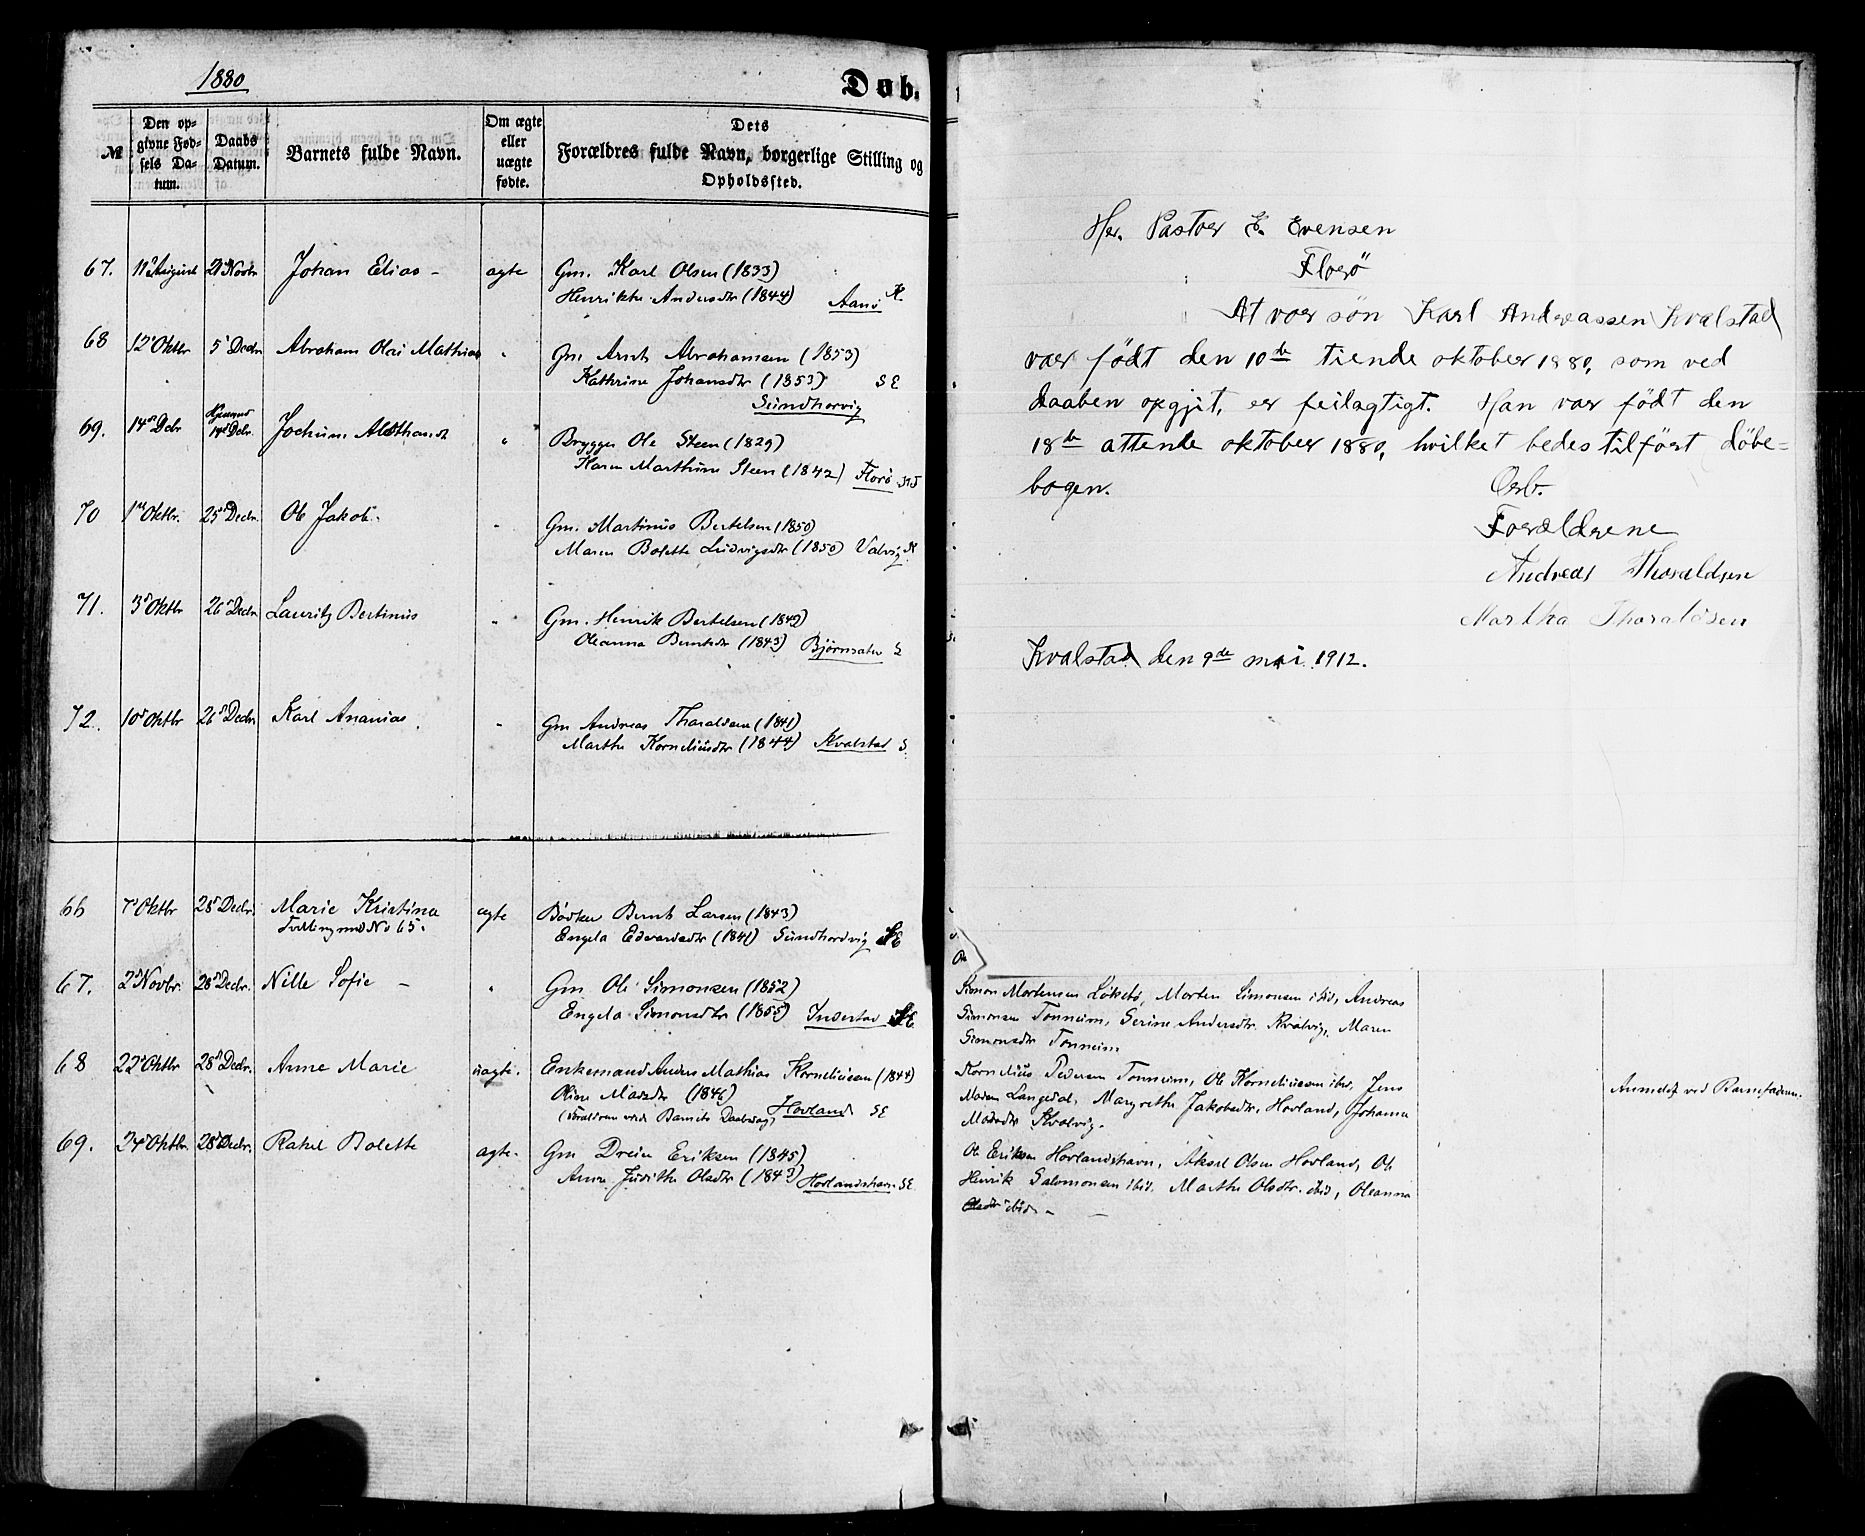 1880
Daab.
№
Den opgivne Fødsels Datum.
Daabs Datum.
Barnets fulde Navn.
Om ægte eller uægte fødte.
Dets Forældres fulde Navn, borgerlige Stilling og Opholdssted.
67. 11' August 21' Novbr Johan Elias – ægte Gm. Karl Olsen (1833)
Henrikke Andersdtr (1844) Aanø K.
68 12' Oktbr 5' Decbr Abraham Olai Mathias " Gm Arnt Abrahamsen (1853)
Kathrine Johansdtr (1853) SE
Sundhorvig
69. 14d Dcbr Hjemme 14d Dcbr. Jochum " Brygger Ole Steen (1829)
Karen Marthine Steen (1842) Florø
70 1ste Oktbr. 25d Decbr. Ole Jakob. " Gm. Martinus Bertelsen (1850)
Maren Bolette Ludvigsdtr (1850) Valvig
71. 3d Oktbr 26d Decbr Lauritz Bertinius " Gm. Henrik Bertelsen (1842)
Oleanna Berntsdtr (1843) Bjørnsæter S
72. 10d Oktbr 26d Decbr Karl Ananias. " Gm Andreas Tharaldsen (1841)
Marthe Korneliusdtr (1844) Kvalstad S.
66 7' Oktbr 28d Decbr. Marie Kristina ægte Bødker Bernt Larsen (1843)
Tvilling med No 65. Engela Edvardsdtr (1841) Sundhordvig SE
67. 2d Novbr. 28d Decbr. Nille Sofie – " Gm Ole Simonsen (1852)
Engela Simonsdtr (1855) Indestad SE
68 22' Oktbr 28d Decbr. Anne Marie uægte. Enkemand Anders Mathias Korneliussen (1844)
Oline Madsdtr (1846)
(Forældrene viede Barnets Daabsdag) Hovland SE
69. 24' Oktbr. 28d Decbr. Rakel Bolette ægte. Gm Dreier Eriksen (1845)
Anne Judithe Olsdtr (1843) Hovlandshavn SE.
Hr. Pastor E. Evensen
Florø
At vor søn Karl Andreassen Kvalstad
var født den 10de tiende oktober 1880, som ved
daaben opgjit, er feilagtigt. Han var født den
18de attende oktober 1880, hvilket bedes tilført døbe-
bogen.
Ærb.
Forældrene
Andreas Tharaldsen
Martha Tharaldsen
Kvalstad den 9de mai 1912.
Simon Mortensen Løkebø, Morten Simonsen ibid, Andreas
Simonsen Tonheim, Serine Andersdtr. Kvalvig, Maren
Simonsdtr Tonheim
Kornelius Pedersen Tonheim, Ole Korneliussen ibid, Jens
Madsen Langedal, Margrethe Jakobsdtr. Hovland, Johanna
Madsdtr Kvalvig.
Anmeldt ved Barnefaderen.
Ole Eriksen Hovlandshavn, Aksel Olsen Hovland, Ole
Henrik Salomonsen ibid. Marthe Olsdtr. ibid, Oleanna
Olsdtr ibid. –